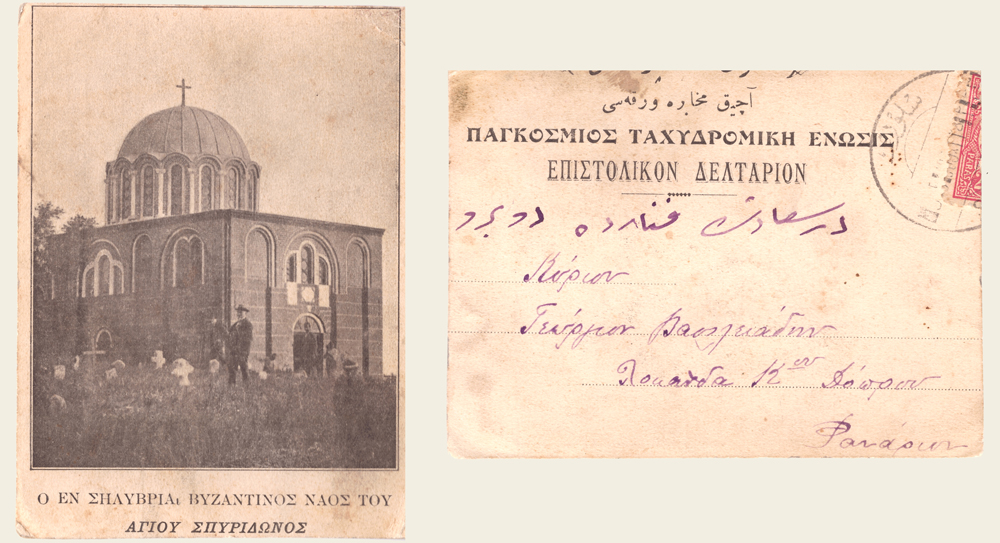 Ο ΕΝ ΣΗΛΥΒΡΙΑι ΒΥΖΑΝΤΙΝΟΣ ΝΑΟΣ ΤΟΥ
ΑΓΙΟΥ ΣΠΥΡΙΔΩΝΟΣ
آچيق مخابره ورقه‌سى
ΠΑΓΚΟΣΜΙΟΣ ΤΑΧΥΔΡΟΜΙΚΗ ΕΝΩΣΙΣ
ΕΠΙΣΤΟΛΙΚΟΝ ΔΕΛΤΑΡΙΟΝ
در سعادت فنارده
Κύριον
Γεώργιον Βασιλειάδην
Λοκάνδα Κου
Φανάριον
PARAS